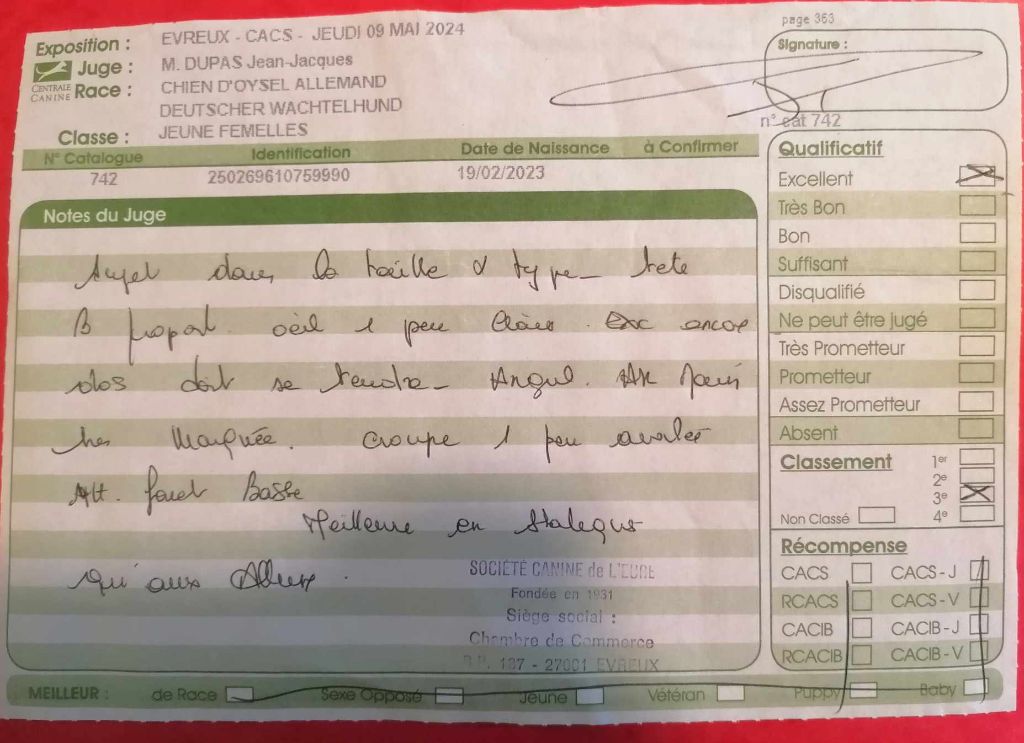 page 363
Exposition : EVREUX - CACS - JEUDI 09 MAI 2024
Signature :
CENTRALE CANINE
Juge : M. DUPAS Jean-Jacques
Race : CHIEN D'OYSEL ALLEMAND
DEUTSCHER WACHTELHUND
Classe : JEUNE FEMELLES
n° cat 742
N° Catalogue Identification Date de Naissance à Confirmer
742 250269610759990 19/02/2023
Notes du Juge
Sujet dans la taille & type - tete
B proport. oeil 1 peu clair. Exc encore
dos doit se tendre - Angul.
tres Marquée. croupe 1 peu avalée
Att. fouet Basse
Meilleure en Statique
qu'aux Allures.
SOCIÉTÉ CANINE de L'EURE
Fondée en 1931
Siège social :
Chambre de Commerce
B.P. 187 - 27001 EVREUX
Qualificatif
Excellent
Très Bon
Bon
Suffisant
Disqualifié
Ne peut être jugé
Très Prometteur
Prometteur
Assez Prometteur
Absent
Classement 1er
2e
3e
Non Classé 4e
Récompense
CACS CACS - J
RCACS CACS - V
CACIB CACIB - J
RCACIB CACIB - V
MEILLEUR : de Race Sexe Opposé Jeune Vétéran Puppy Baby